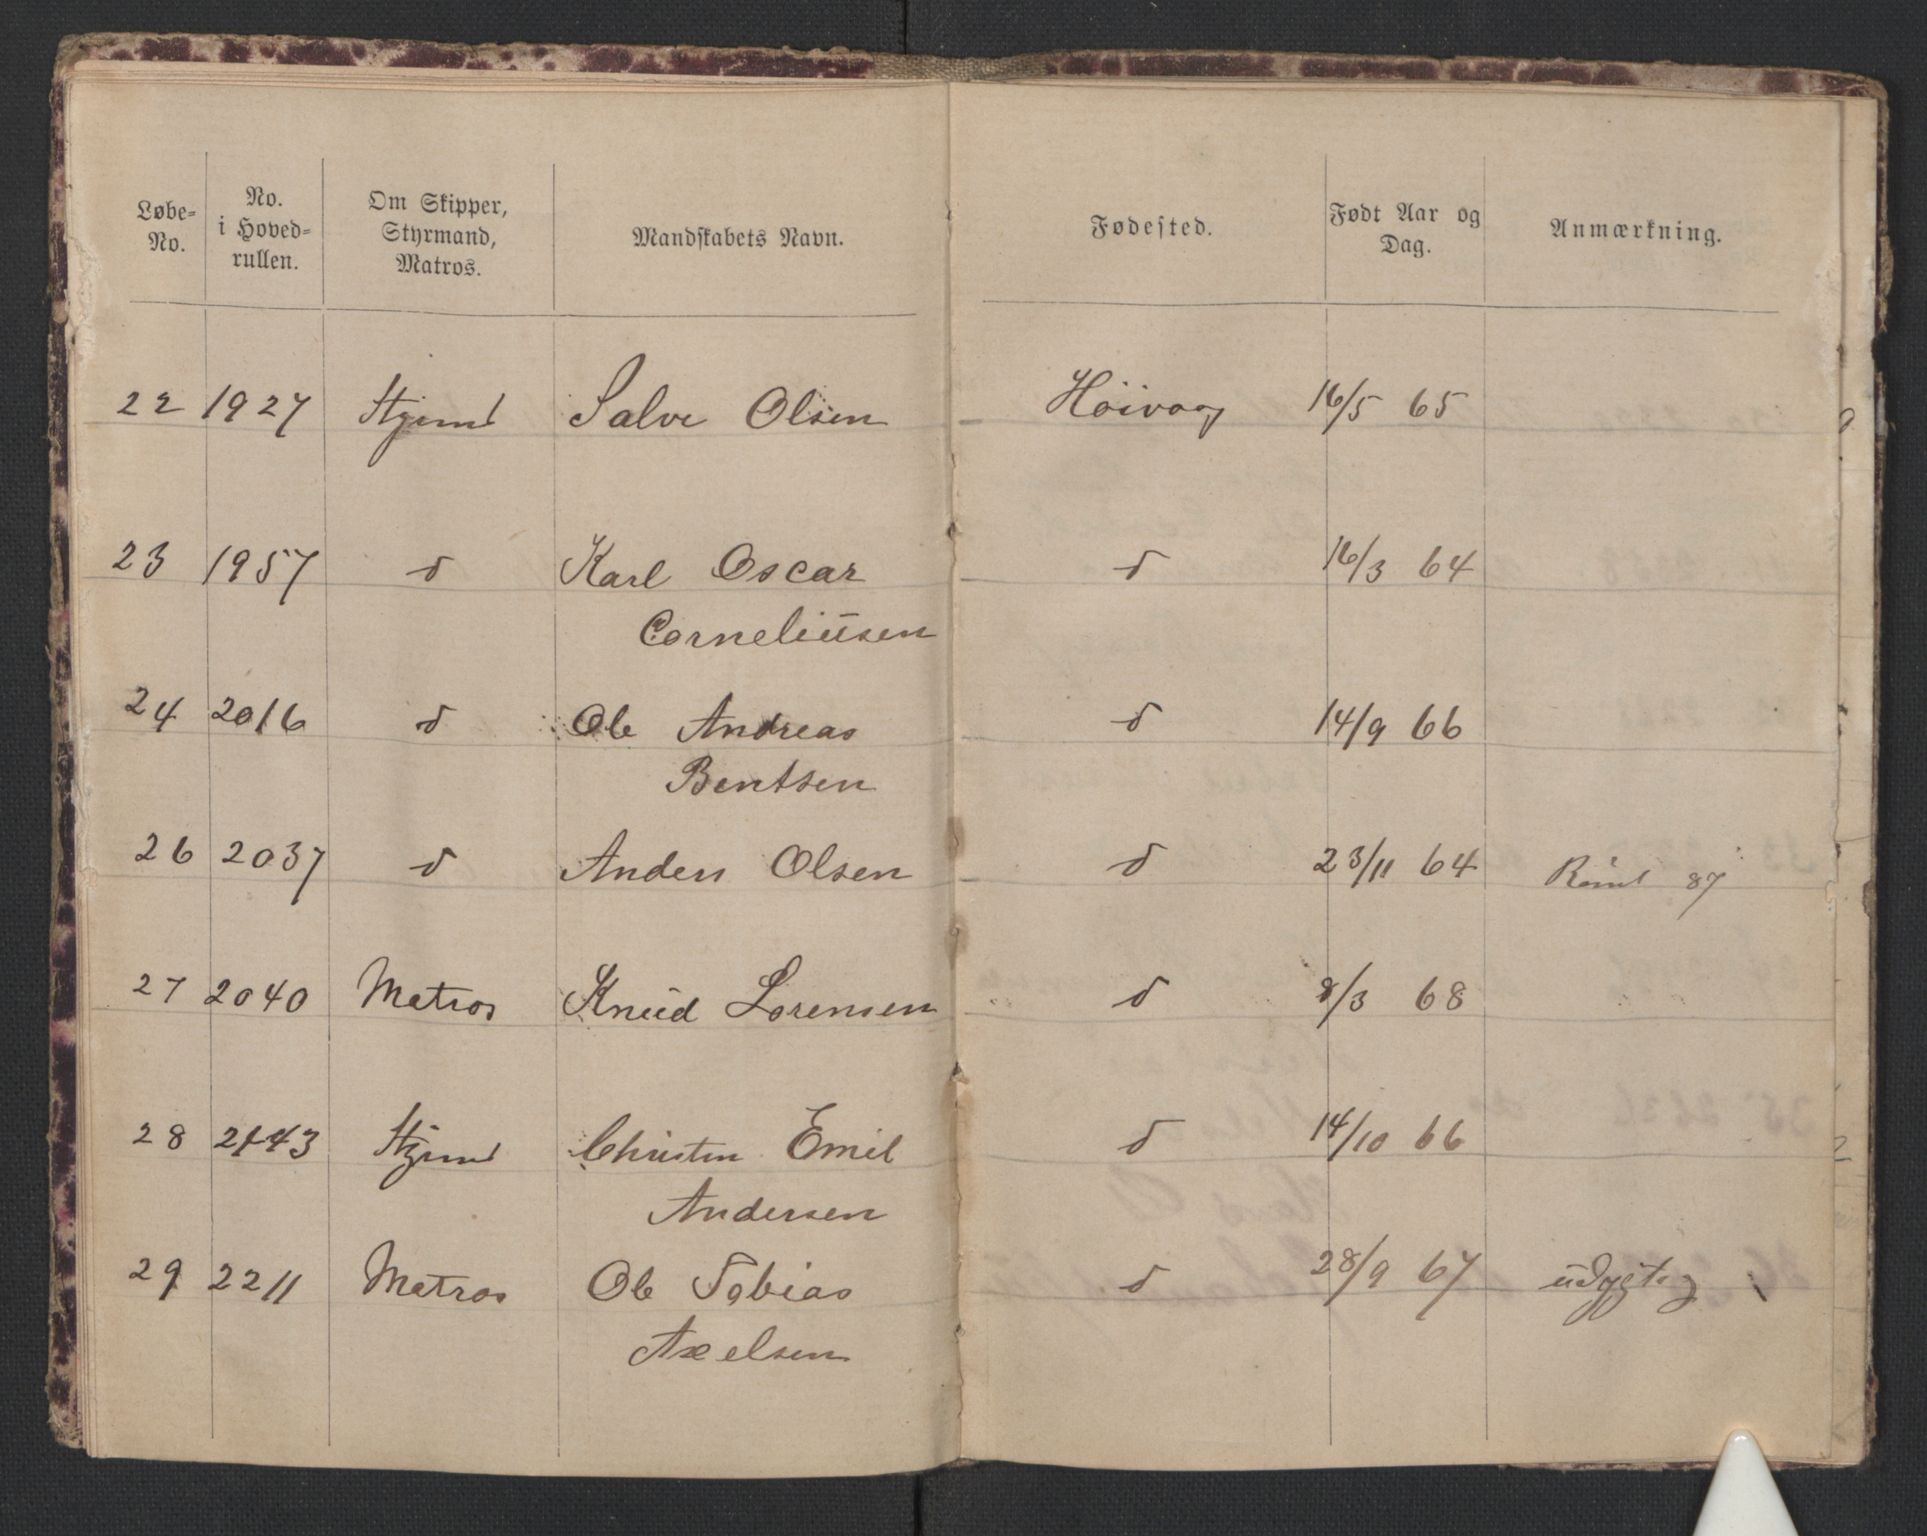 Løbe-
No.
No.
i Hoved-
rullen.
Om Skipper,
Styrmand,
Matros.
Mandskabets Navn.
Fødested.
Født Aar og
Dag.
Anmærkning.
22 1927 Styrmd Salve Olsen Höivaag 16/5 65
23 1957 d Karl Oscar d 16/3 64
Corneliusen
24 2016 d Ole Andreas d 14/9 66
Bentsen
26 2037 d Anders Olsen d 23/11 64 Römt 87
27 2040 Matros Knud Lorensen d 8/3 68
28 2143 Styrmd Christen Emil d 14/10 66
Andersen
29 2211 Matros Ole Tobias d 28/9 67
Axelsen